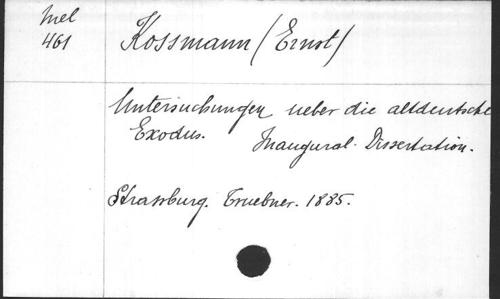 Mel
461
Kossmann (Ernst)
Untersuchungen ueber die altdeutsche
Exodus. Inaugural-Dissertation.
Strassburg. Truebner. 1885.